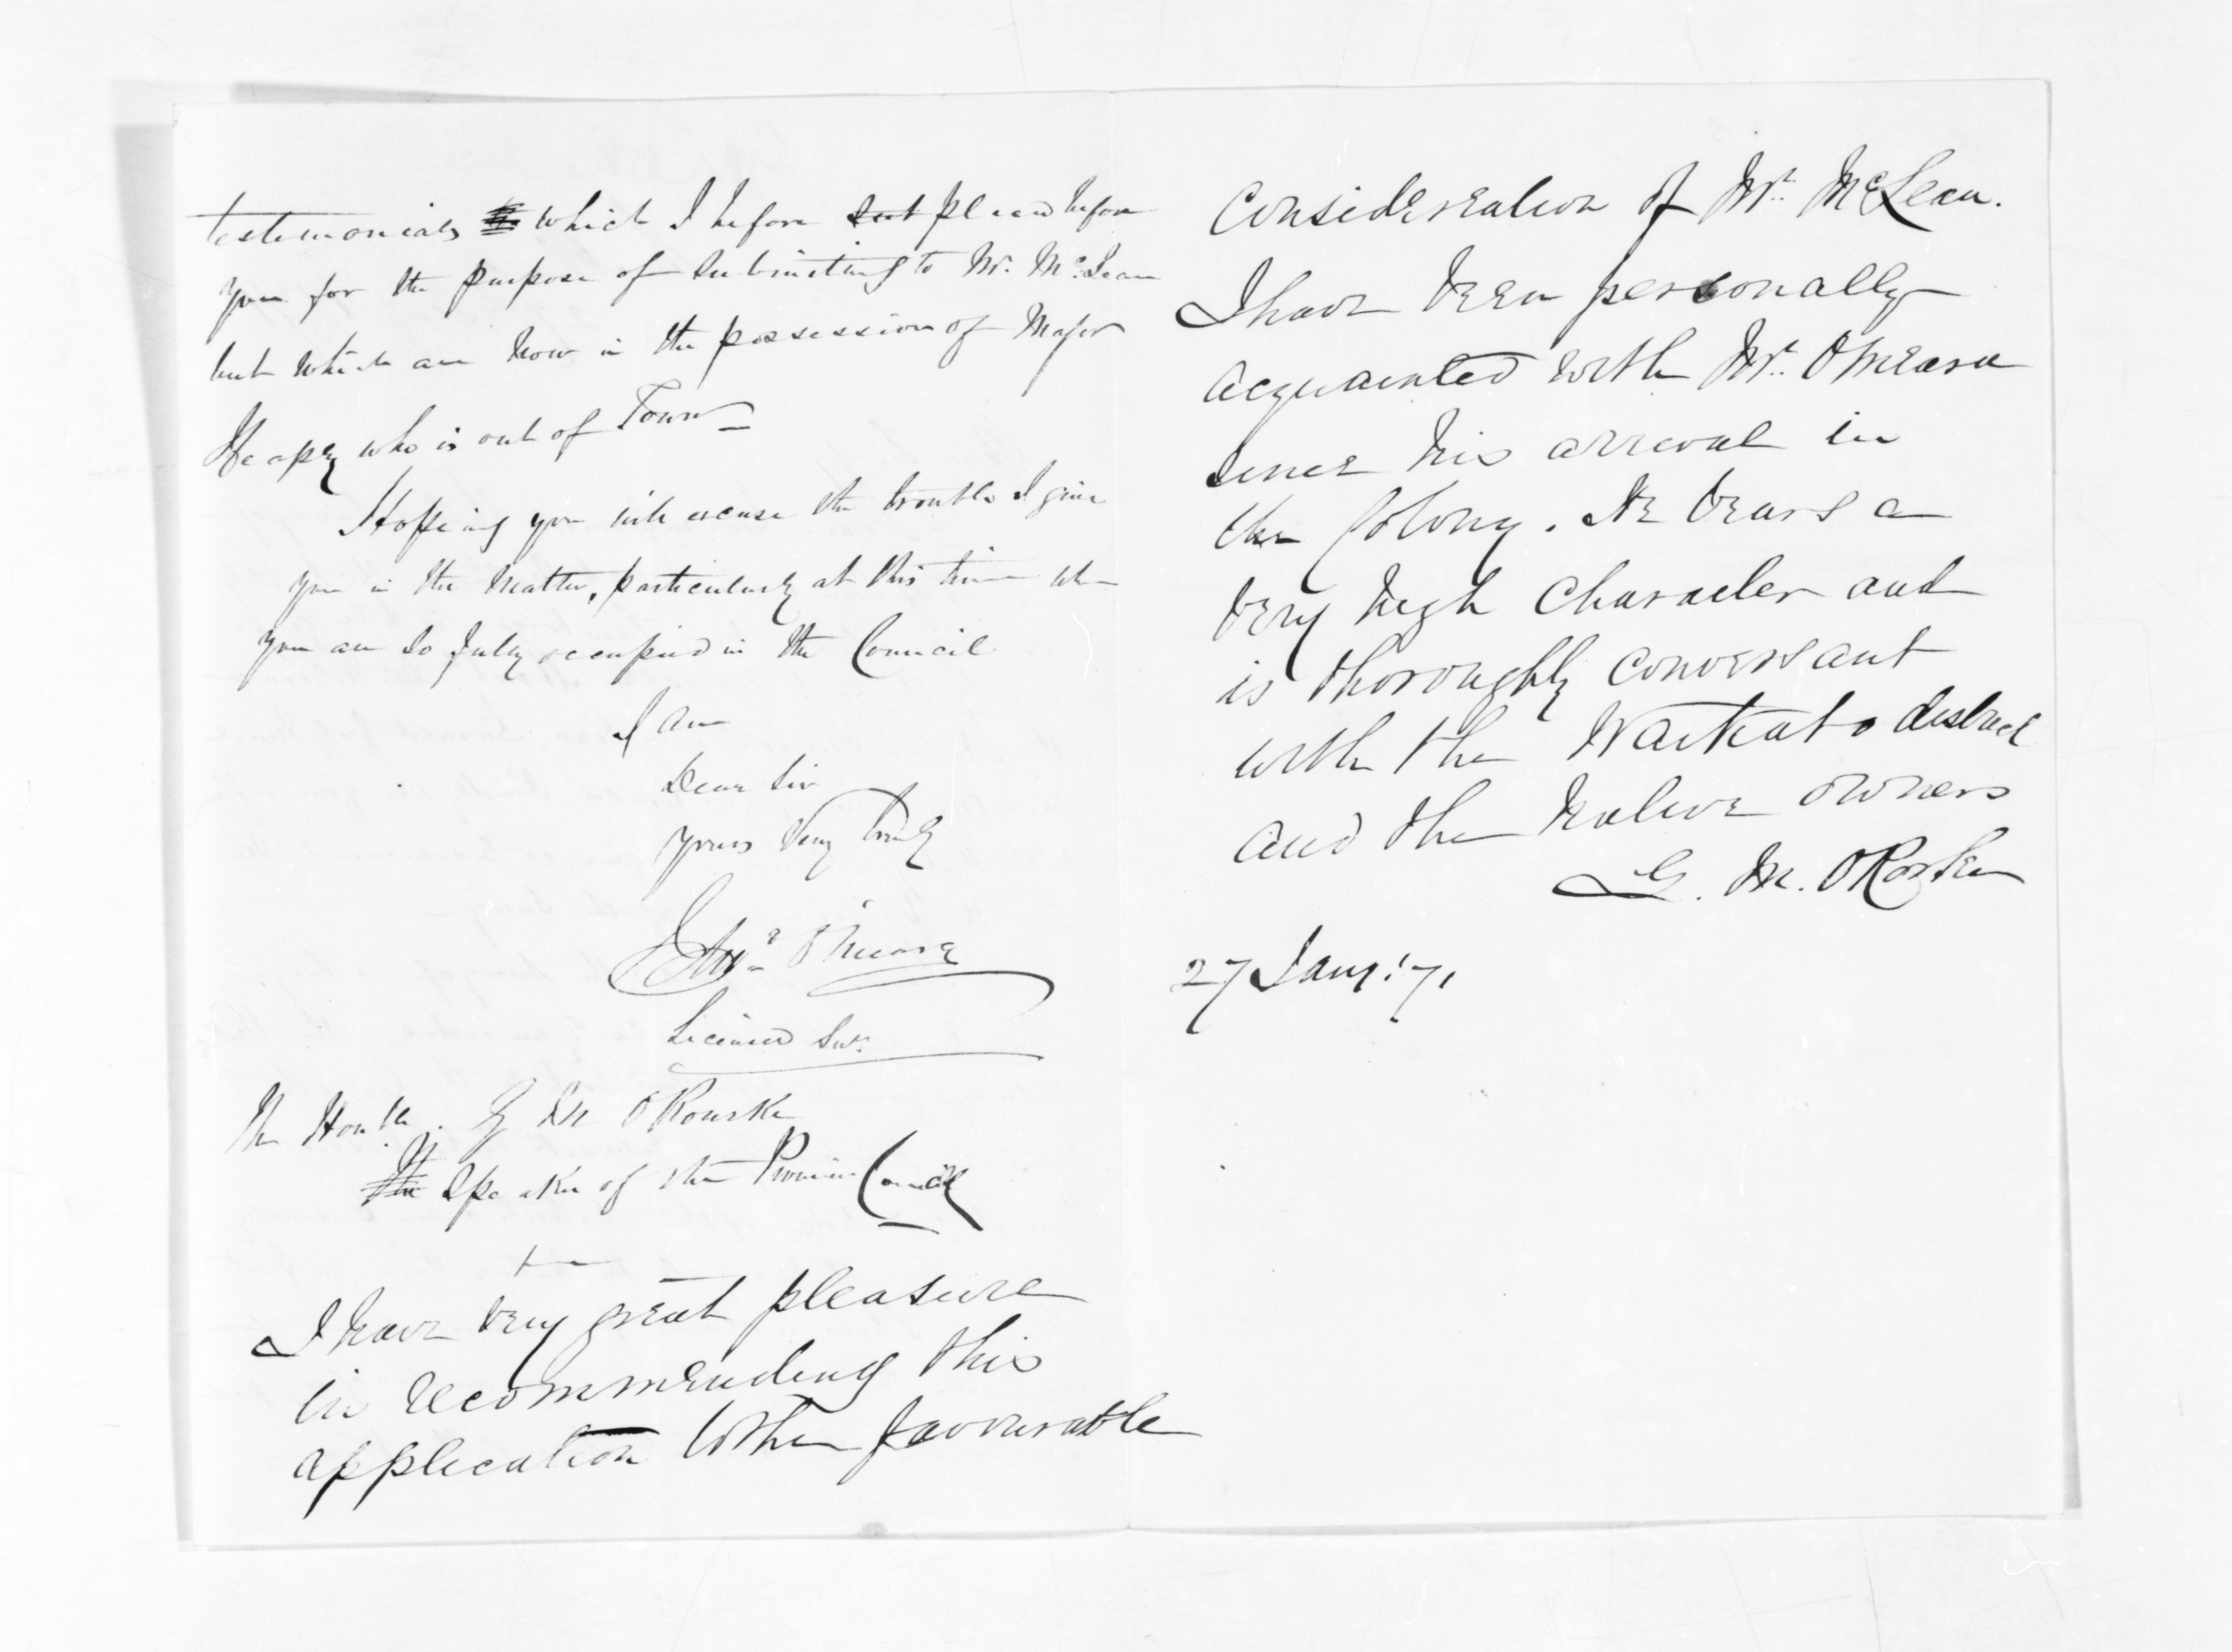 testimonials which I before sent placed before
you for the purpose of submitting to Mr. McLean
but which are now in the possession of Major
Heaphy who is out of Town
Hoping you will excuse the trouble I give
you in the matter, particularly at this time when
you are so fully occupied in the Council
I am
Dear Sir
Yours very truly
O'Meara
Licensed Surr.
The Honble. G M O'Rourke
The Speaker of the Council
I have very great pleasure
in recommending this
application to the favourable
consideration of Mr. McLean.
I have been personally
acquainted with Mr. O'Meara
since his arrival in
the Colony. He bears a
very high character and
is thoroughly conversant
with the Waikato district
and the native owners
G. M. O'Rorke
27 Jany. '71